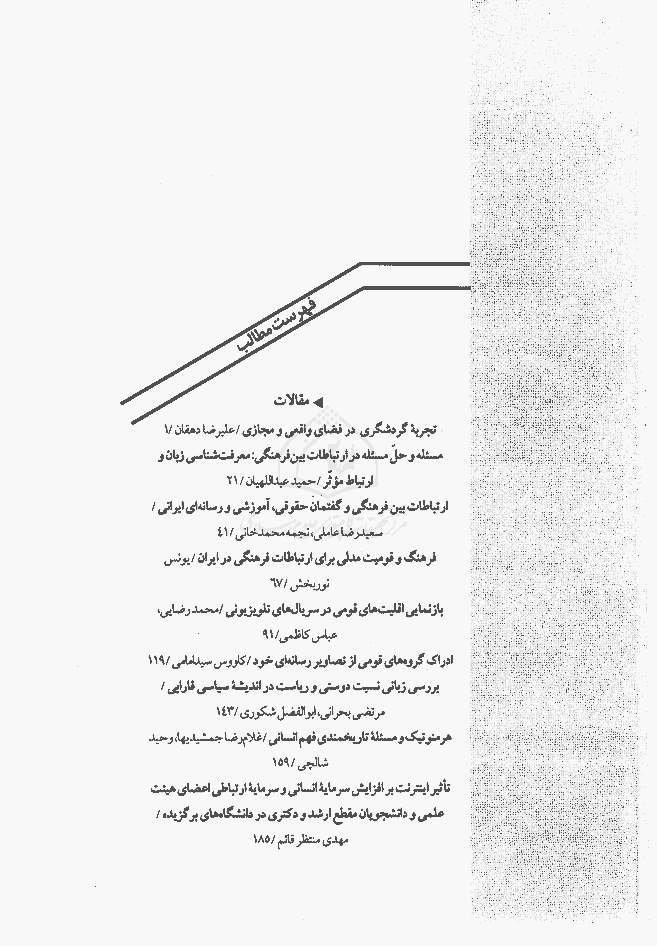 فهرست مطالب
◀ مقالات
تجربهٔ گردشگری در فضای واقعی و مجازی / علیرضا دهقان /۱
مسئله و حلّ مسئله در ارتباطات بین‌فرهنگی: معرفت‌شناسی زبان و
ارتباط مؤثّر / حمید عبداللهیان /۲۱
ارتباطات بین فرهنگی و گفتمان حقوقی، آموزشی و رسانه‌ای ایرانی /
سعیدرضا عاملی، نجمه محمدخانی /۴۱
فرهنگ و قومیت مدلی برای ارتباطات فرهنگی در ایران / یونس
نوربخش /۶۷
بازنمایی اقلیت‌های قومی در سریال‌های تلویزیونی / محمد رضایی،
عباس کاظمی /۹۱
ادراک گروه‌های قومی از تصاویر رسانه‌ای خود / کاووس سیدامامی /۱۱۹
بررسی زبانی نسبت دوستی و ریاست در اندیشهٔ سیاسی فارابی /
مرتضی بحرانی، ابوالفضل شکوری /۱۴۳
هرمنوتیک و مسئلهٔ تاریخمندی فهم انسانی / غلامرضا جمشیدیها، وحید
شالچی /۱۵۹
تأثیر اینترنت بر افزایش سرمایهٔ انسانی و سرمایهٔ ارتباطی اعضای هیئت
علمی و دانشجویان مقطع ارشد و دکتری در دانشگاه‌های برگزیده /
مهدی منتظر قائم /۱۸۵